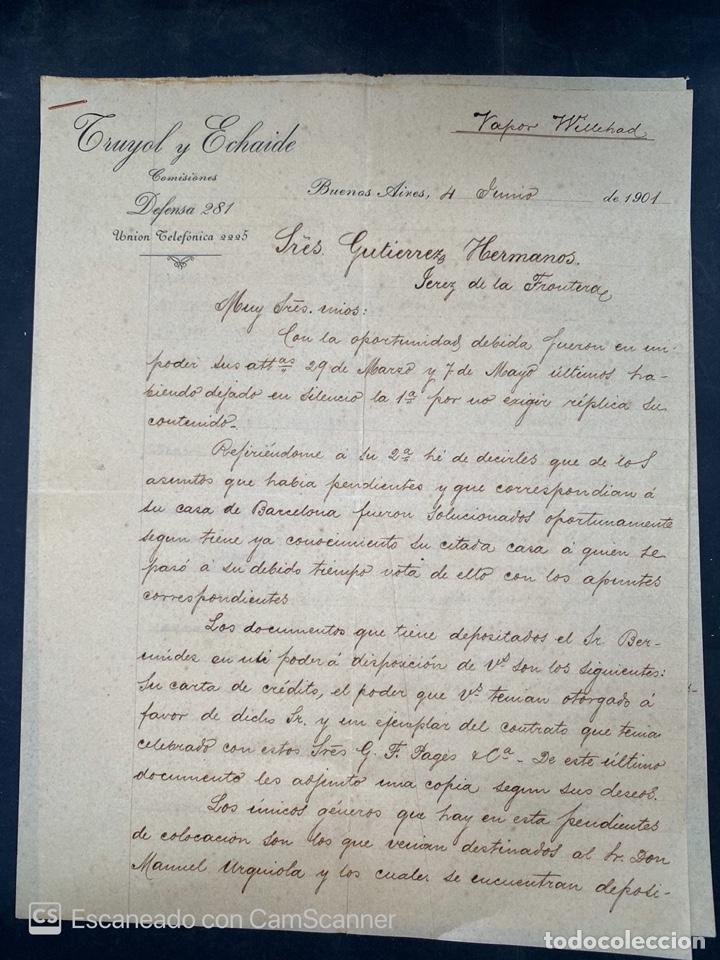 Vapor Willehad
Truyol y Echaide
Comisiones
Defensa 281
Union Telefónica 2225
Buenos Aires, 4 Junio de 1901
Srēs. Gutierrez Hermanos.
Jerez de la Frontera
Muy Srēs. mios:
Con la oportunidad debida fueron en mi
poder sus attas 29 de Marzo y 7 de Mayo últimos ha-
biendo dejado en silencio la 1ª por no exigir réplica su
contenido.
Refiriéndome á su 2ª hé de decirles que de los
asuntos que habia pendientes y que correspondian á
su casa de Barcelona fueron solucionados oportunamente
segun tiene ya conocimiento su citada casa á quien se
pasó á su debido tiempo nota de ello con los apuntes
correspondientes
Los documentos que tiene depositados el Sr. Ber-
múdez en mi poder á disposición de Vs son los siguientes:
Su carta de crédito, el poder que Vs tenian otorgado á
favor de dicho Sr. y un ejemplar del contrato que tenia
celebrado con estos Srēs G. F. Pagés & Cª - De este último
documento les adjunto una copia segun sus deseos.
Los únicos géneros que hay en esta pendientes
de colocación son los que venian destinados al Sr. Don
Manuel Urquiola y los cuales se encuentran deposi-
CS Escaneado con CamScanner
todocoleccion